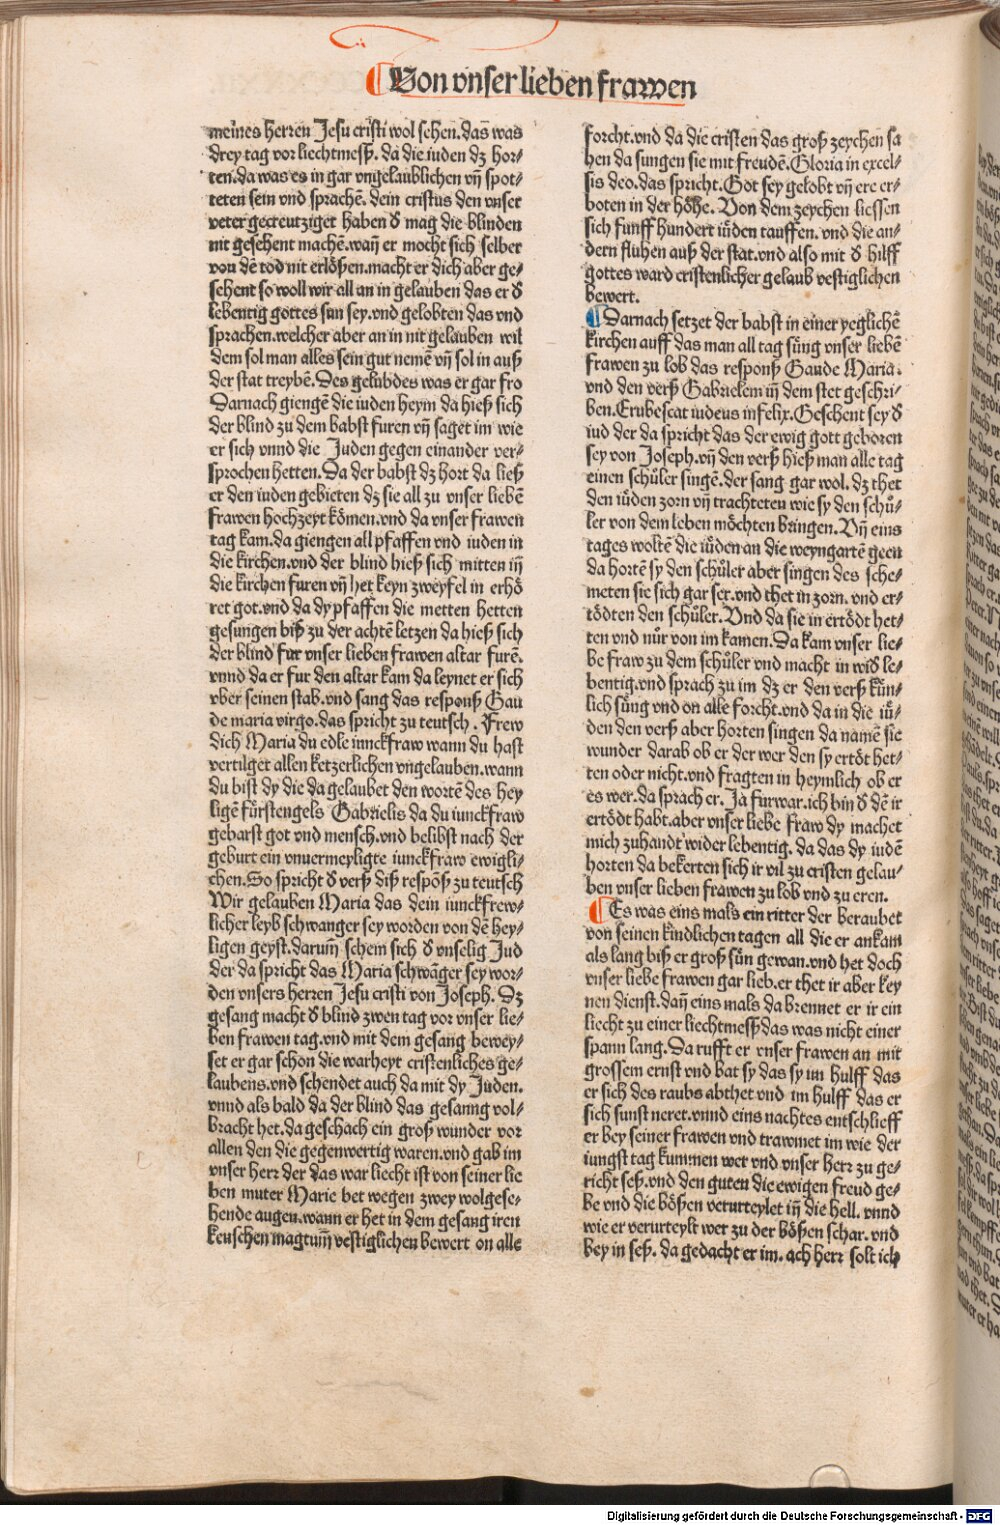 ¶ Von vnser lieben frawen
meines herren Jesu cristi wol sehen. das was
drey tag vor liechtmesß. da die iuden dz hor⸗
ten. da was es in gar vngelaublichen vñ spot⸗
teten sein vnd sprachē. dein cristus den vnser
veter gecreutziget haben d̕ mag die blinden
nit gesehent machē. wañ er mocht sich selber
von dē tod nit erlösen. macht er dich aber ge⸗
sehent so woll wir all an in gelauben das er d̕
lebentig gottes sun sey. vnd gelobten das vnd
sprachen. welcher aber an in nit gelauben wil
dem sol man alles sein gut nemē vñ sol in auß
der stat treybē. Des gelübdes was er gar fro
Darnach giengē die iuden heym da hieß sich
der blind zu dem babst furen vñ saget im wie
er sich vnnd die Juden gegen einander ver⸗
sprochen hetten. Da der babst dz hort da ließ
er den iuden gebieten dz sie all zu vnser liebē
frawen hochzeyt kömen. vnd da vnser frawen
tag kam. da giengen all pfaffen vnd iuden in
die kirchen. vnd der blind hieß sich mitten iñ
die kirchen furen vñ het keyn zweyfel in erhö
ret got. vnd da dy pfaffen die metten hetten
gesungen biß zu der achtē letzen da hieß sich
der blind fur vnser lieben frawen altar furē.
vnnd da er fur den altar kam da leynet er sich
vber seinen stab. vnd sang das respons Gau
de maria virgo. das spricht zu teutsch. Frew
dich Maria du edle iunckfraw wann du hast
vertilget allen ketzerlichen vngelauben. wann
du bist dy die da gelaubet den wortē des hey
ligē fürstengels Gabrielis da du iunckfraw
gebarst got vnd mensch. vnd belibst nach der
geburt ein vnuermeyligte iunckfraw ewigli⸗
chen. So spricht d̕ verß diß respōß zu teutsch
Wir gelauben Maria das dein iunckfrew⸗
licher leyb schwanger sey worden von dē hey⸗
ligen geyst. darum̄ schem sich d̕ vnselig Jud
der da spricht das Maria schwāger sey wor⸗
den vnsers herren Jesu cristi von Joseph. Dz
gesang macht d̕ blind zwen tag vor vnser lie⸗
ben frawen tag. vnd mit dem gesang bewey⸗
set er gar schon die warheyt cristenliches ge⸗
laubens. vnd schendet auch da mit dy Juden.
vnnd als bald da der blind das gesanng vol⸗
bracht het. da geschach ein groß wunder vor
allen den die gegenwertig waren. vnd gab im
vnser herr der das war liecht ist von seiner lie
ben muter Marie bet wegen zwey wolgese⸗
hende augen. wann er het in dem gesang iren
keuschen magtum̄ vestiglichen bewert on alle
forcht. vnd da die cristen das groß zeychen sa
hen da sungen sie mit freudē. Gloria in excel⸗
sis deo. das spricht. Got sey gelobt vñ ere er⸗
boten in der höhe. Von dem zeychen liessen
sich funff hundert iüden tauffen. vnd die an⸗
dern fluhen auß der stat. vnd also mit d̕ hilff
gottes ward cristenlicher gelaub vestiglichen
bewert.
¶ Darnach setzet der babst in einer yeglichē
kirchen auff das man all tag süng vnser liebē
frawen zu lob das respons Gaude Maria.
vnd den verß Gabrielem iñ dem stet geschri⸗
ben. Erubescat iudeus infelix. Geschent sey d̕
iud der da spricht das der ewig gott geboren
sey von Joseph. vñ den verß hieß man alle tag
einen schüler singē. der sang gar wol. dz thet
den iüden zorn vñ trachteten wie sy den schü⸗
ler von dem leben möchten bringen. Vñ eins
tages woltē die iüden an die weyngartē geen
da hortē sy den schüler aber singen des sche⸗
meten sie sich gar ser. vnd thet in zorn. vnd er⸗
tödten den schüler. Vnd da sie in ertödt het⸗
ten vnd nür von im kamen. Da kam vnser lie⸗
be fraw zu dem schüler vnd macht in wid̕ le⸗
bentig. vnd sprach zu im dz er den verß kün⸗
lich süng vnd on alle forcht. vnd da in die iü⸗
den den verß aber horten singen da namē sie
wunder darab ob er der wer den sy ertöt het⸗
ten oder nicht. vnd fragten in heymlich ob er
es wer. da sprach er. Ja furwar. ich bin d̕ dē ir
ertödt habt. aber vnser liebe fraw dy machet
mich zuhandt wider lebentig. da das dy iudē
horten da bekerten sich ir vil zu cristen gelau⸗
ben vnser lieben frawen zu lob vnd zu eren.
¶ Es was eins mals ein ritter der beraubet
von seinen kindlichen tagen all die er ankam
als lang biß er groß sün gewan. vnd het doch
vnser liebe frawen gar lieb. er thet ir aber key
nen dienst. dañ eins mals da brennet er ir ein
liecht zu einer liechtmesß das was nicht einer
spann lang. Da rufft er vnser frawen an mit
grossem ernst vnd bat sy das sy im hulff das
er sich des raubs abthet vnd im hulff das er
sich sunst neret. vnnd eins nachtes entschlieff
er bey seiner frawen vnd trawmet im wie der
iungst tag kummen wer vnd vnser herr zu ge⸗
richt seß. vnd den guten die ewigen freud ge⸗
be vnd die bößen verurteylet iñ die hell. vnnd
wie er verurteylt wer zu der bößen schar. vnd
bey in seß. da gedacht er im. ach herr solt ich
Digitalisierung gefördert durch die Deutsche Forschungsgemeinschaft - DFG